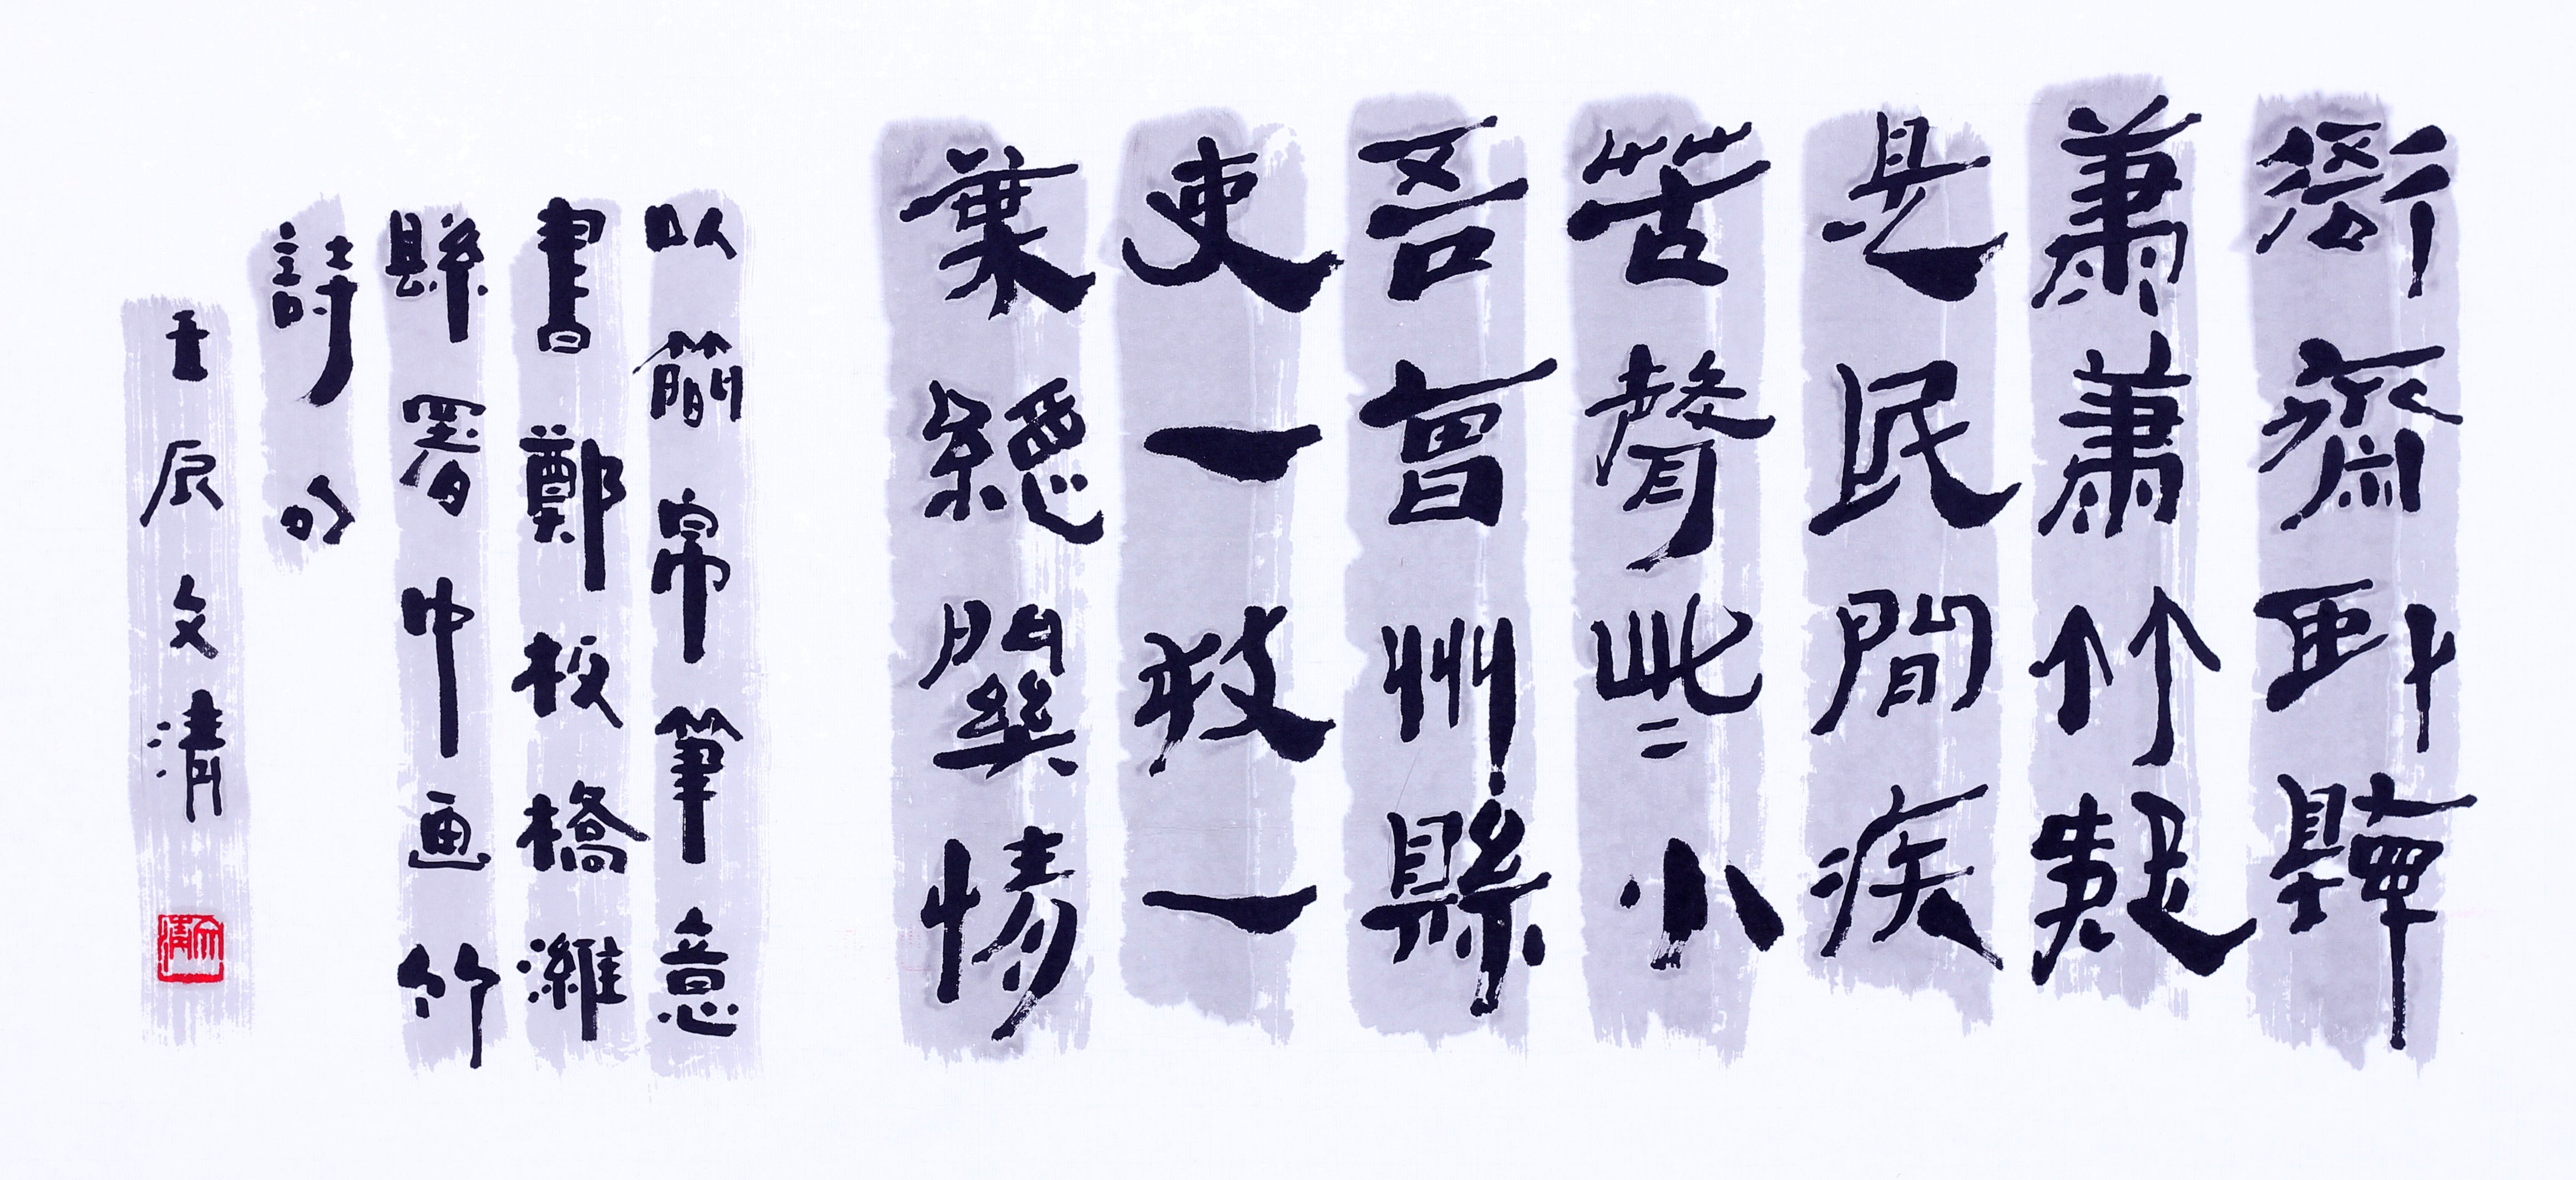 衙齋臥聽
蕭蕭竹疑
是民間疾
苦聲些小
吾曹州縣
吏一枝一
葉總關情
以簡帛筆意
書鄭板橋濰
縣署中画竹
詩
壬辰文清
文清